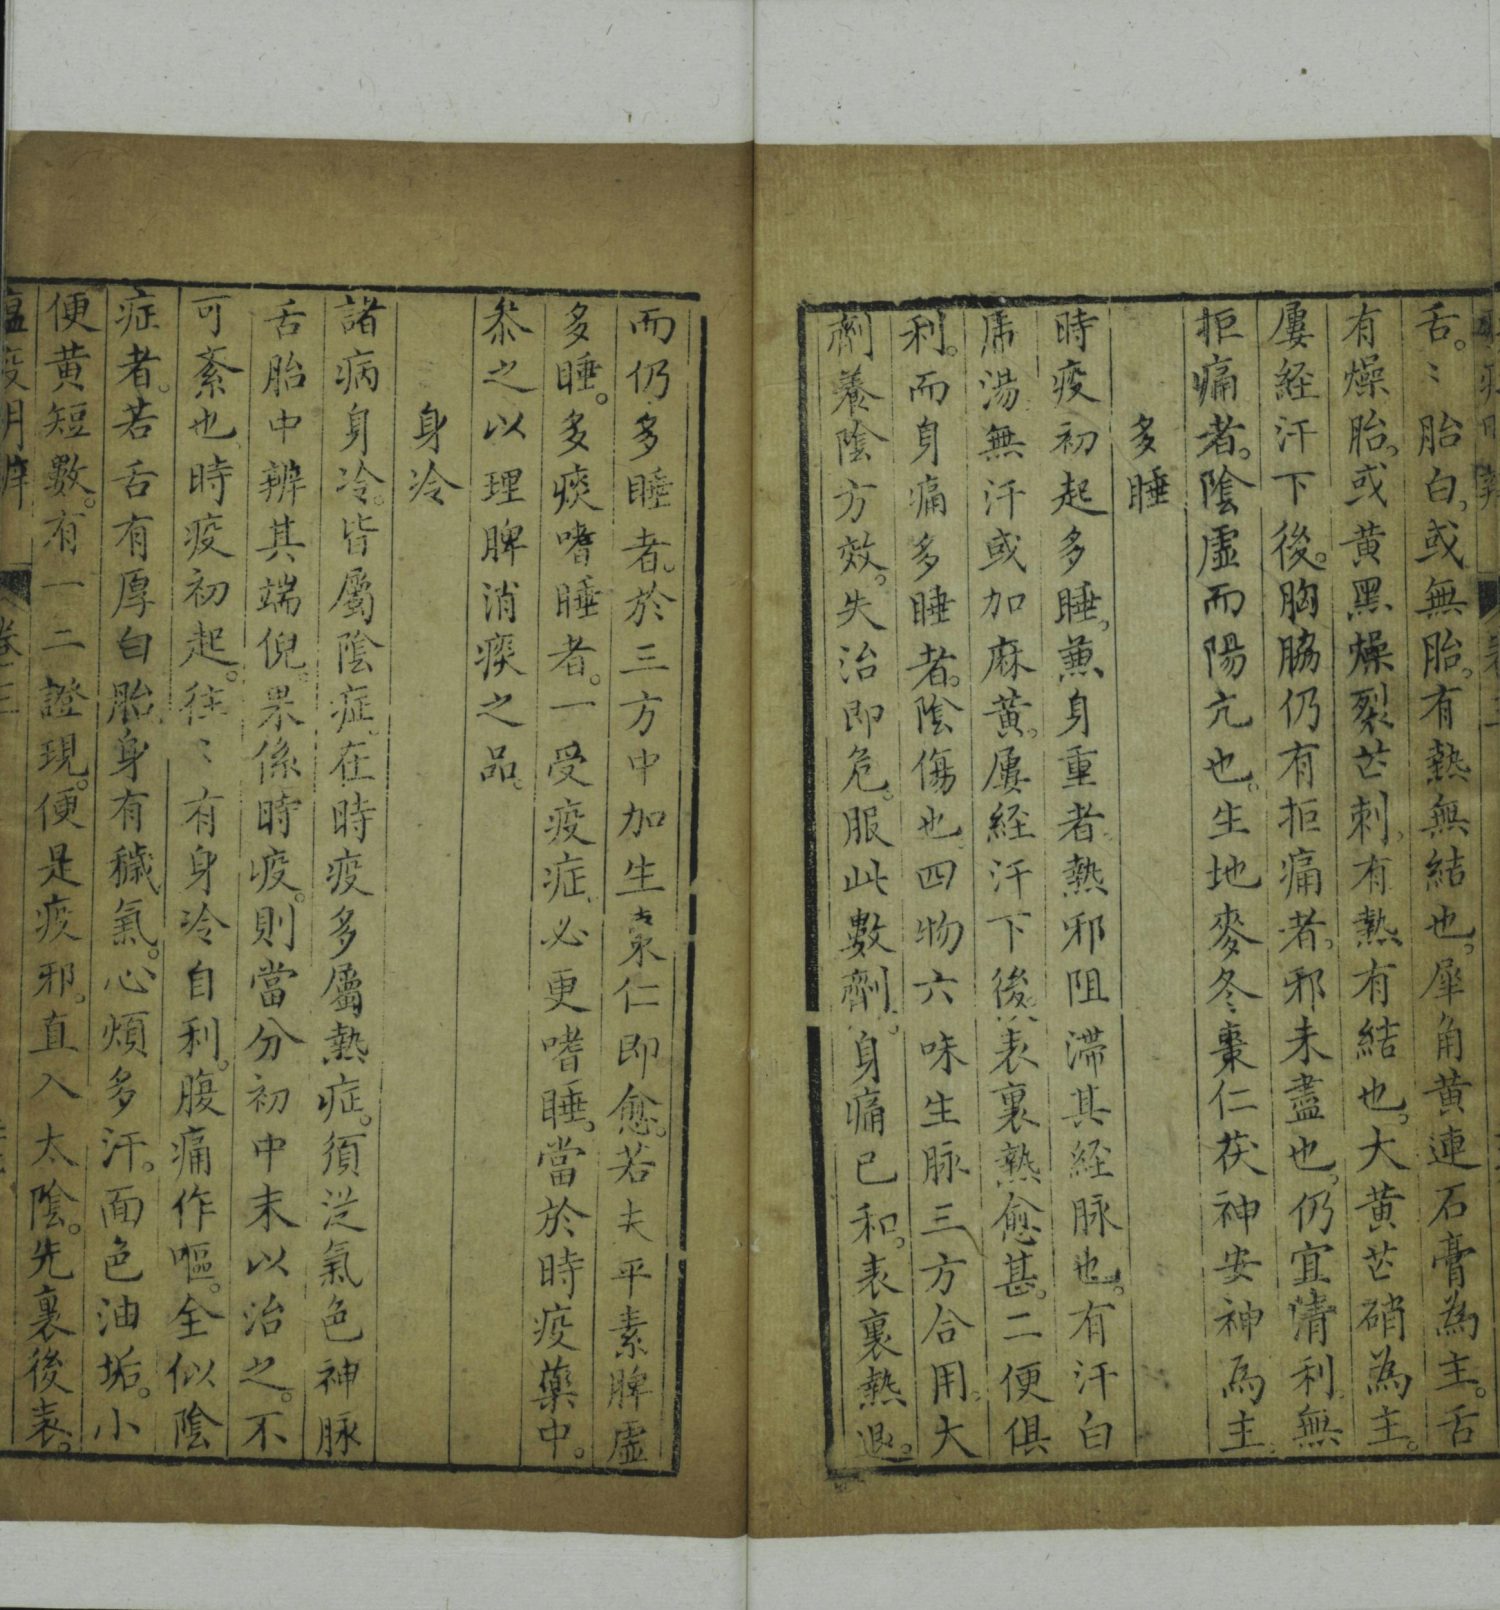 舌。〻胎白。或無胎。有熱無結也。犀角黃連石膏為主。舌
有燥胎。或黃黑燥裂芒刺。有熱有結也。大黃芒硝為主。
屢經汗下後。胸脇仍有拒痛者。邪未盡也。仍宜清利。無
拒痛者。陰虛而陽亢也。生地麥冬棗仁茯神安神為主。
多睡
時疫初起多睡。兼身重者熱邪阻滯其經脉也。有汗白
虎湯無汗或加麻黃。屢經汗下後表裏熱愈甚。二便俱
利。而身痛多睡者。陰傷也四物六味生脉三方合用。大
劑養陰方效。失治即危。服此數劑。身痛已和。表裏熱退。
而仍多睡者。於三方中加生棗仁即愈。若夫平素脾虛
多睡。多痰嗜睡者。一受疫症。必更嗜睡。當於時疫藥中。
叅之以理脾消痰之品。
身冷
諸病身冷。皆屬陰症。在時疫多屬熱症。須從氣色神脉
舌胎中辨其端倪。果係時疫。則當分初中末以治之。不
可紊也。時疫初起。往〻有身冷自利。腹痛作嘔。全似陰
症者。若舌有厚白胎。身有穢氣。心煩多汗。面色油垢。小
便黃短數。有一二證現。便是疫邪。直入太陰。先裏後表。
瘟疫明辨 卷三